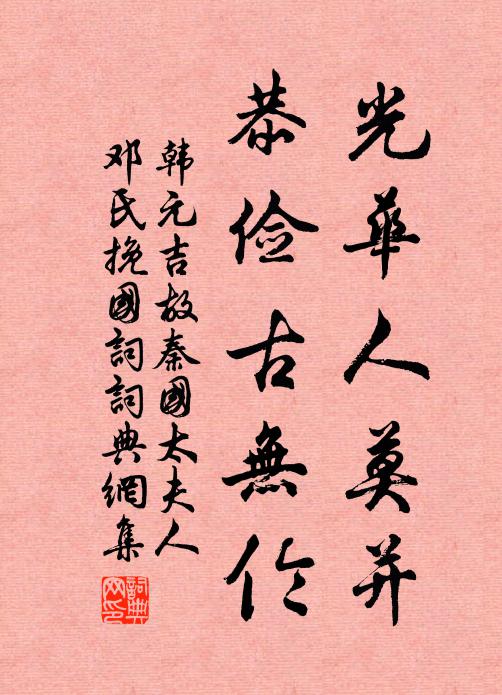 光華人莫并
恭俭古無伦
韩元吉故秦國太夫人
邓氏挽國詞詞典網集
詞典
网印